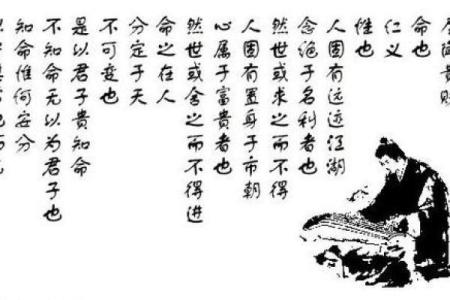 貴
命也
仁义
性也
人固有远迹江湖
念绝于名利者也
然世或求之而不得
人固有置身于市朝
心属于富貴者也
然世或舍之而不得进
命之在人
分定于天
不可变也
是以君子貴知命
不知命无以为君子也
知命惟何安分